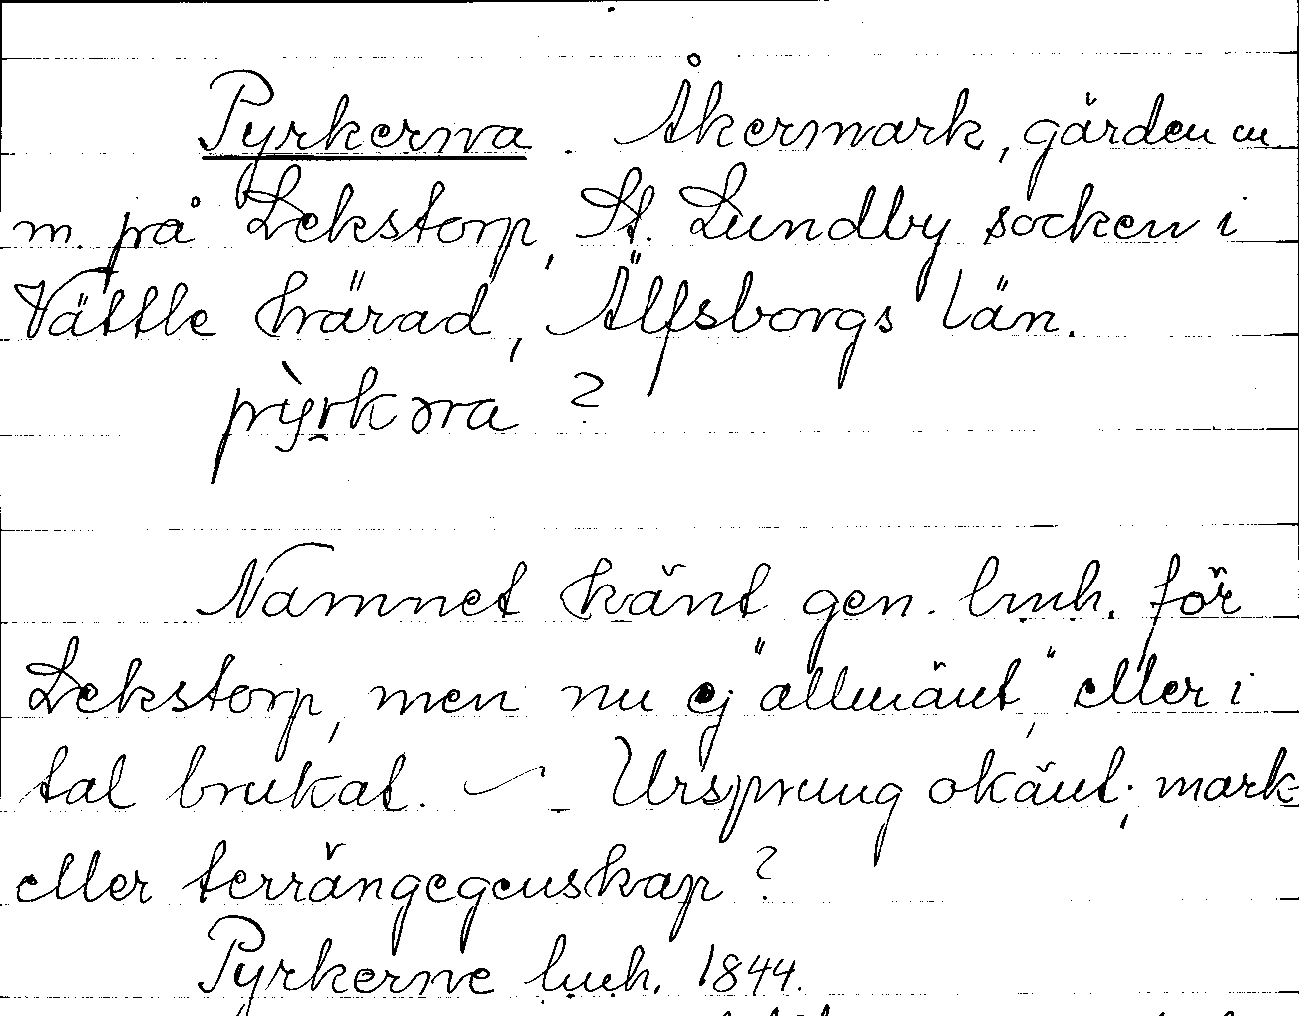 Pyrkerna. Åkermark, gärden m
m. på Lekstorp, St. Lundby socken i
Vättle härad, Älfsborgs län.
pỳrkəra ?
Namnet känt gen. lmh. för
Lekstorp, men nu ej "allmänt," eller i
tal brukat. — Ursprung okänt; mark-
eller terrängegenskap?
Pyrkerne lmh. 1844.